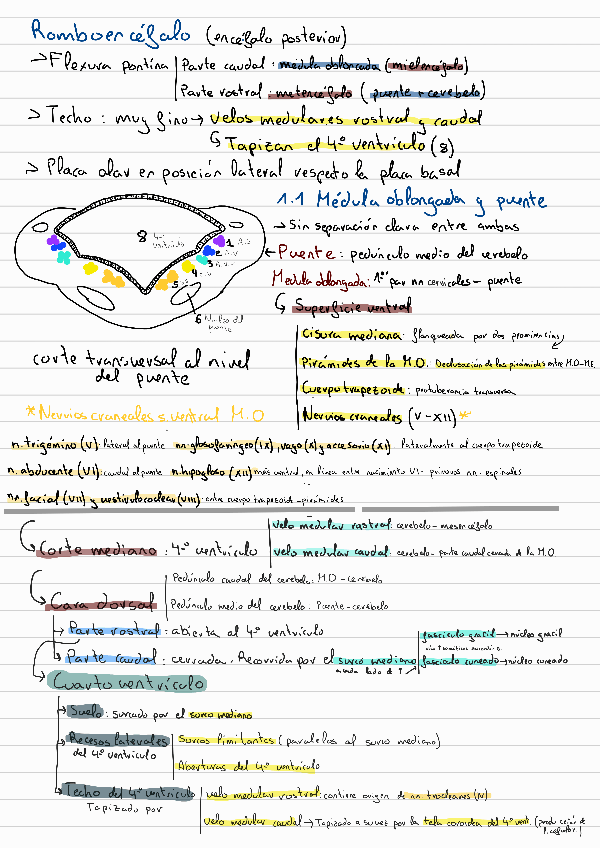 Romboencéfalo (encéfalo posterior)
→ Flexura pontina | Parte caudal: medula oblongada (mielencéfalo)
Parte rostral: metencéfalo (puente + cerebelo)
→ Techo: muy fino → velos medulares rostral y caudal
↳ Tapizan el 4º ventrículo (8)
→ Placa alar en posición lateral respecto la placa basal
1.1 Médula oblongada y puente
→ Sin separación clara entre ambas
← Puente: pedúnculo medio del cerebelo
Medula oblongada: 1er par nn cervicales - puente
↳ Superficie ventral
8 4º ventrículo
1
2
3
4
5
6 Núcleos del puente
Cisura mediana: flanqueada por dos prominencias
Pirámides de la M.O. Decusación de las pirámides entre M.O-ME.
Cuerpo trapezoide: protuberancia transversa
Nervios craneales (V-XII) *
corte transversal al nivel
del puente
* Nervios craneales s. ventral M.O
n. trigémino (V): lateral al puente nn. glosofaríngeo (IX), vago (X) y accesorio (XI): lateralmente al cuerpo trapezoide
n. abducente (VI): caudal al puente n. hipogloso (XII) más ventral, en línea entre nacimiento VI - primeros nn. espinales
nn. facial (VII) y vestibulococlear (VIII): entre cuerpo trapezoide - pirámides
Corte mediano: 4º ventrículo | velo medular rostral: cerebelo - mesencéfalo
velo medular caudal: cerebelo - parte caudal cerrada de la M.O
Cara dorsal | Pedúnculo caudal del cerebelo: M.O - cerebelo
Pedúnculo medio del cerebelo: Puente - cerebelo
→ Parte rostral: abierta al 4º ventrículo
→ Parte caudal: cerrada. Recorrida por el surco mediano
a cada lado de ↑
fascículo gracil → núcleo gracil
fascículo cuneado → núcleo cuneado
Cuarto ventrículo
→ Suelo: surcado por el surco mediano
→ Recesos laterales del 4º ventrículo | Surcos limitantes (paralelos al surco mediano)
Aberturas del 4º ventrículo
→ Techo del 4º ventrículo | velo medular rostral: contiene origen de nn trocleares (IV)
Tapizado por
velo medular caudal → Tapizado a su vez por la tela coroidea del 4º vent.